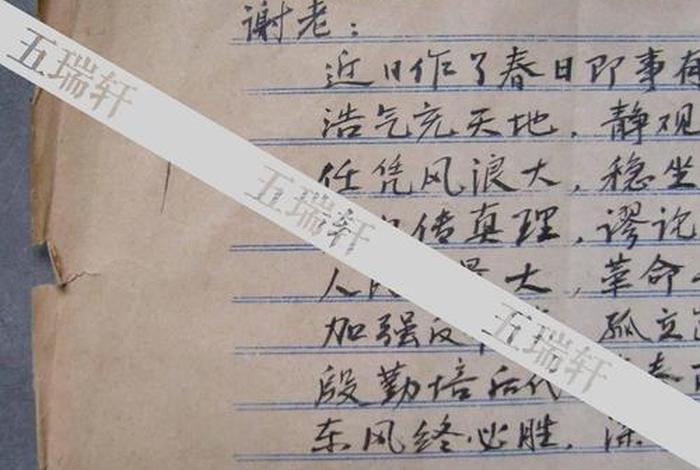 谢老：
近日作了春日即事
浩气充天地，静观
任凭风浪大，稳坐
传真理，谬论
人民 大，革命
加强 孤立
殷勤培后代
东风终必胜，深
五瑞轩
五瑞轩
五瑞轩